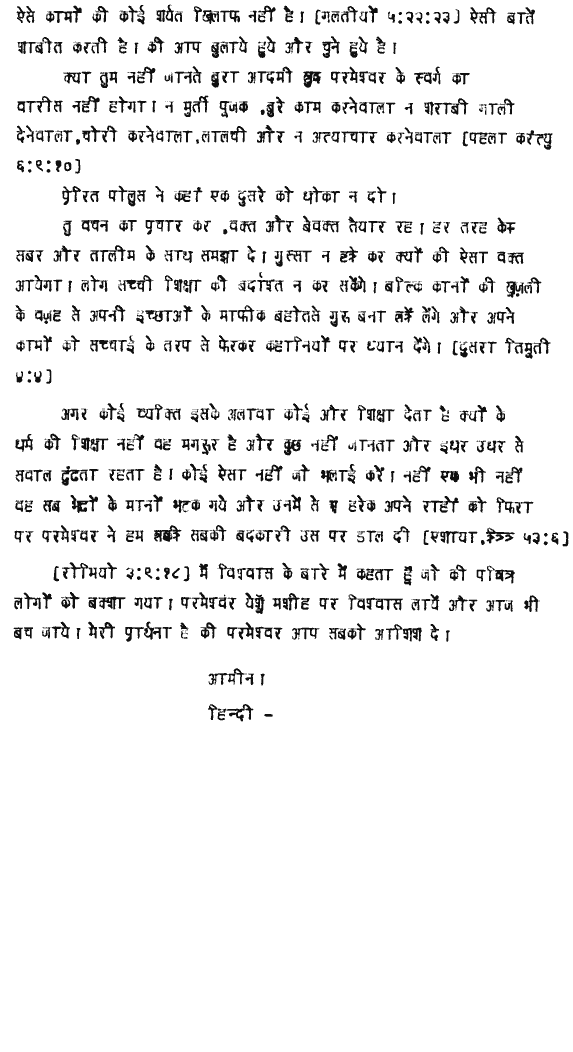 ऐसे कामों की कोई शर्यत खिलाफ नहीं है। [गलतीयों ५:२२:२३] ऐसी बातें
शाबीत करती है। की आप बुलाये हुये और चुने हुये है।
क्या तुम नहीं जानते बुरा आदमी परमेश्वर के स्वर्ग का
वारीस नहीं होगा। न मुर्ती पुजक ,बुरे काम करनेवाला न शराबी गाली
देनेवाला,चोरी करनेवाला,लालची और न अत्याचार करनेवाला [पहला करंत्यु
६:९:१०]
प्रेरित पोलुस ने कहां एक दुसरे को धोका न दो।
तु वचन का प्रचार कर ,वक्त और बेवक्त तैयार रह। हर तरह के
सबर और तालीम के साथ समझा दे। गुस्सा न कर क्यों की ऐसा वक्त
आयेगा। लोग सच्ची शिक्षा की बर्दाश्त न कर सकेंगे। बल्कि कानों की खुजली
के वजह से अपनी इच्छाओं के माफीक बहोतसे गुरू बना लेंगे और अपने
कामों को सच्चाई के तरप से फेरकर कहानियों पर ध्यान देंगे। [दुसरा तिमुती
४:४]
अगर कोई व्यक्ति इसके अलावा कोई और शिक्षा देता है क्यों के
धर्म की शिक्षा नहीं वह मगरूर है और कुछ नहीं जानता और इधर उधर से
सवाल ढुंढता रहता है। कोई ऐसा नहीं जो भलाई करें। नहीं एक भी नहीं
वह सब भेडों के मानों भटक गये और उनमें से हरेक अपने राहों को फिरा
पर परमेश्वर ने हम सबकी बदकारी उस पर डाल दी [एशाया, ५३:६]
[रोमियो ३:९:१८] में विश्वास के बारे में कहता हूँ जो की पवित्र
लोगों को बक्शा गया। परमेश्वर येशू मशीह पर विश्वास लायें और आज भी
बच जाये। मेरी प्रार्थना है की परमेश्वर आप सबको आशिश दे।
आमीन।
हिन्दी -